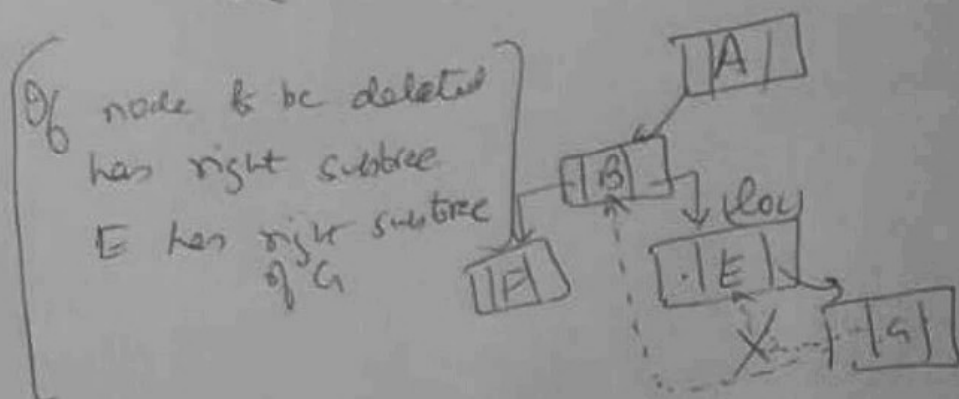 If node to be deleted
has right subtree
E has right subtree
of G
A
B
loc
F
E
G